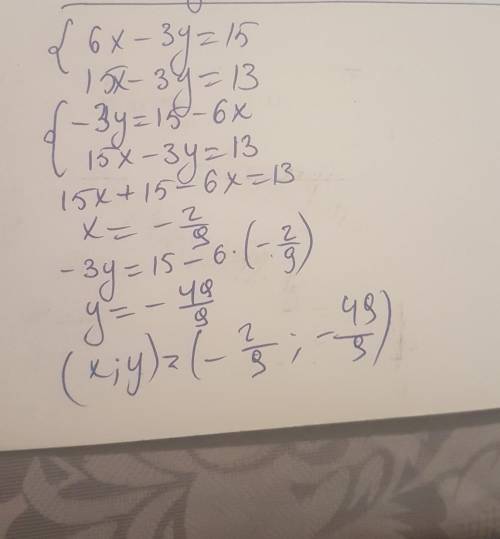 6x - 3y = 15
15x - 3y = 13
-3y = 15 - 6x
15x - 3y = 13
15x + 15 - 6x = 13
x = - 2/9
-3y = 15 - 6 · (- 2/9)
y = - 49/9
(x; y) = (- 2/9 ; - 49/9)